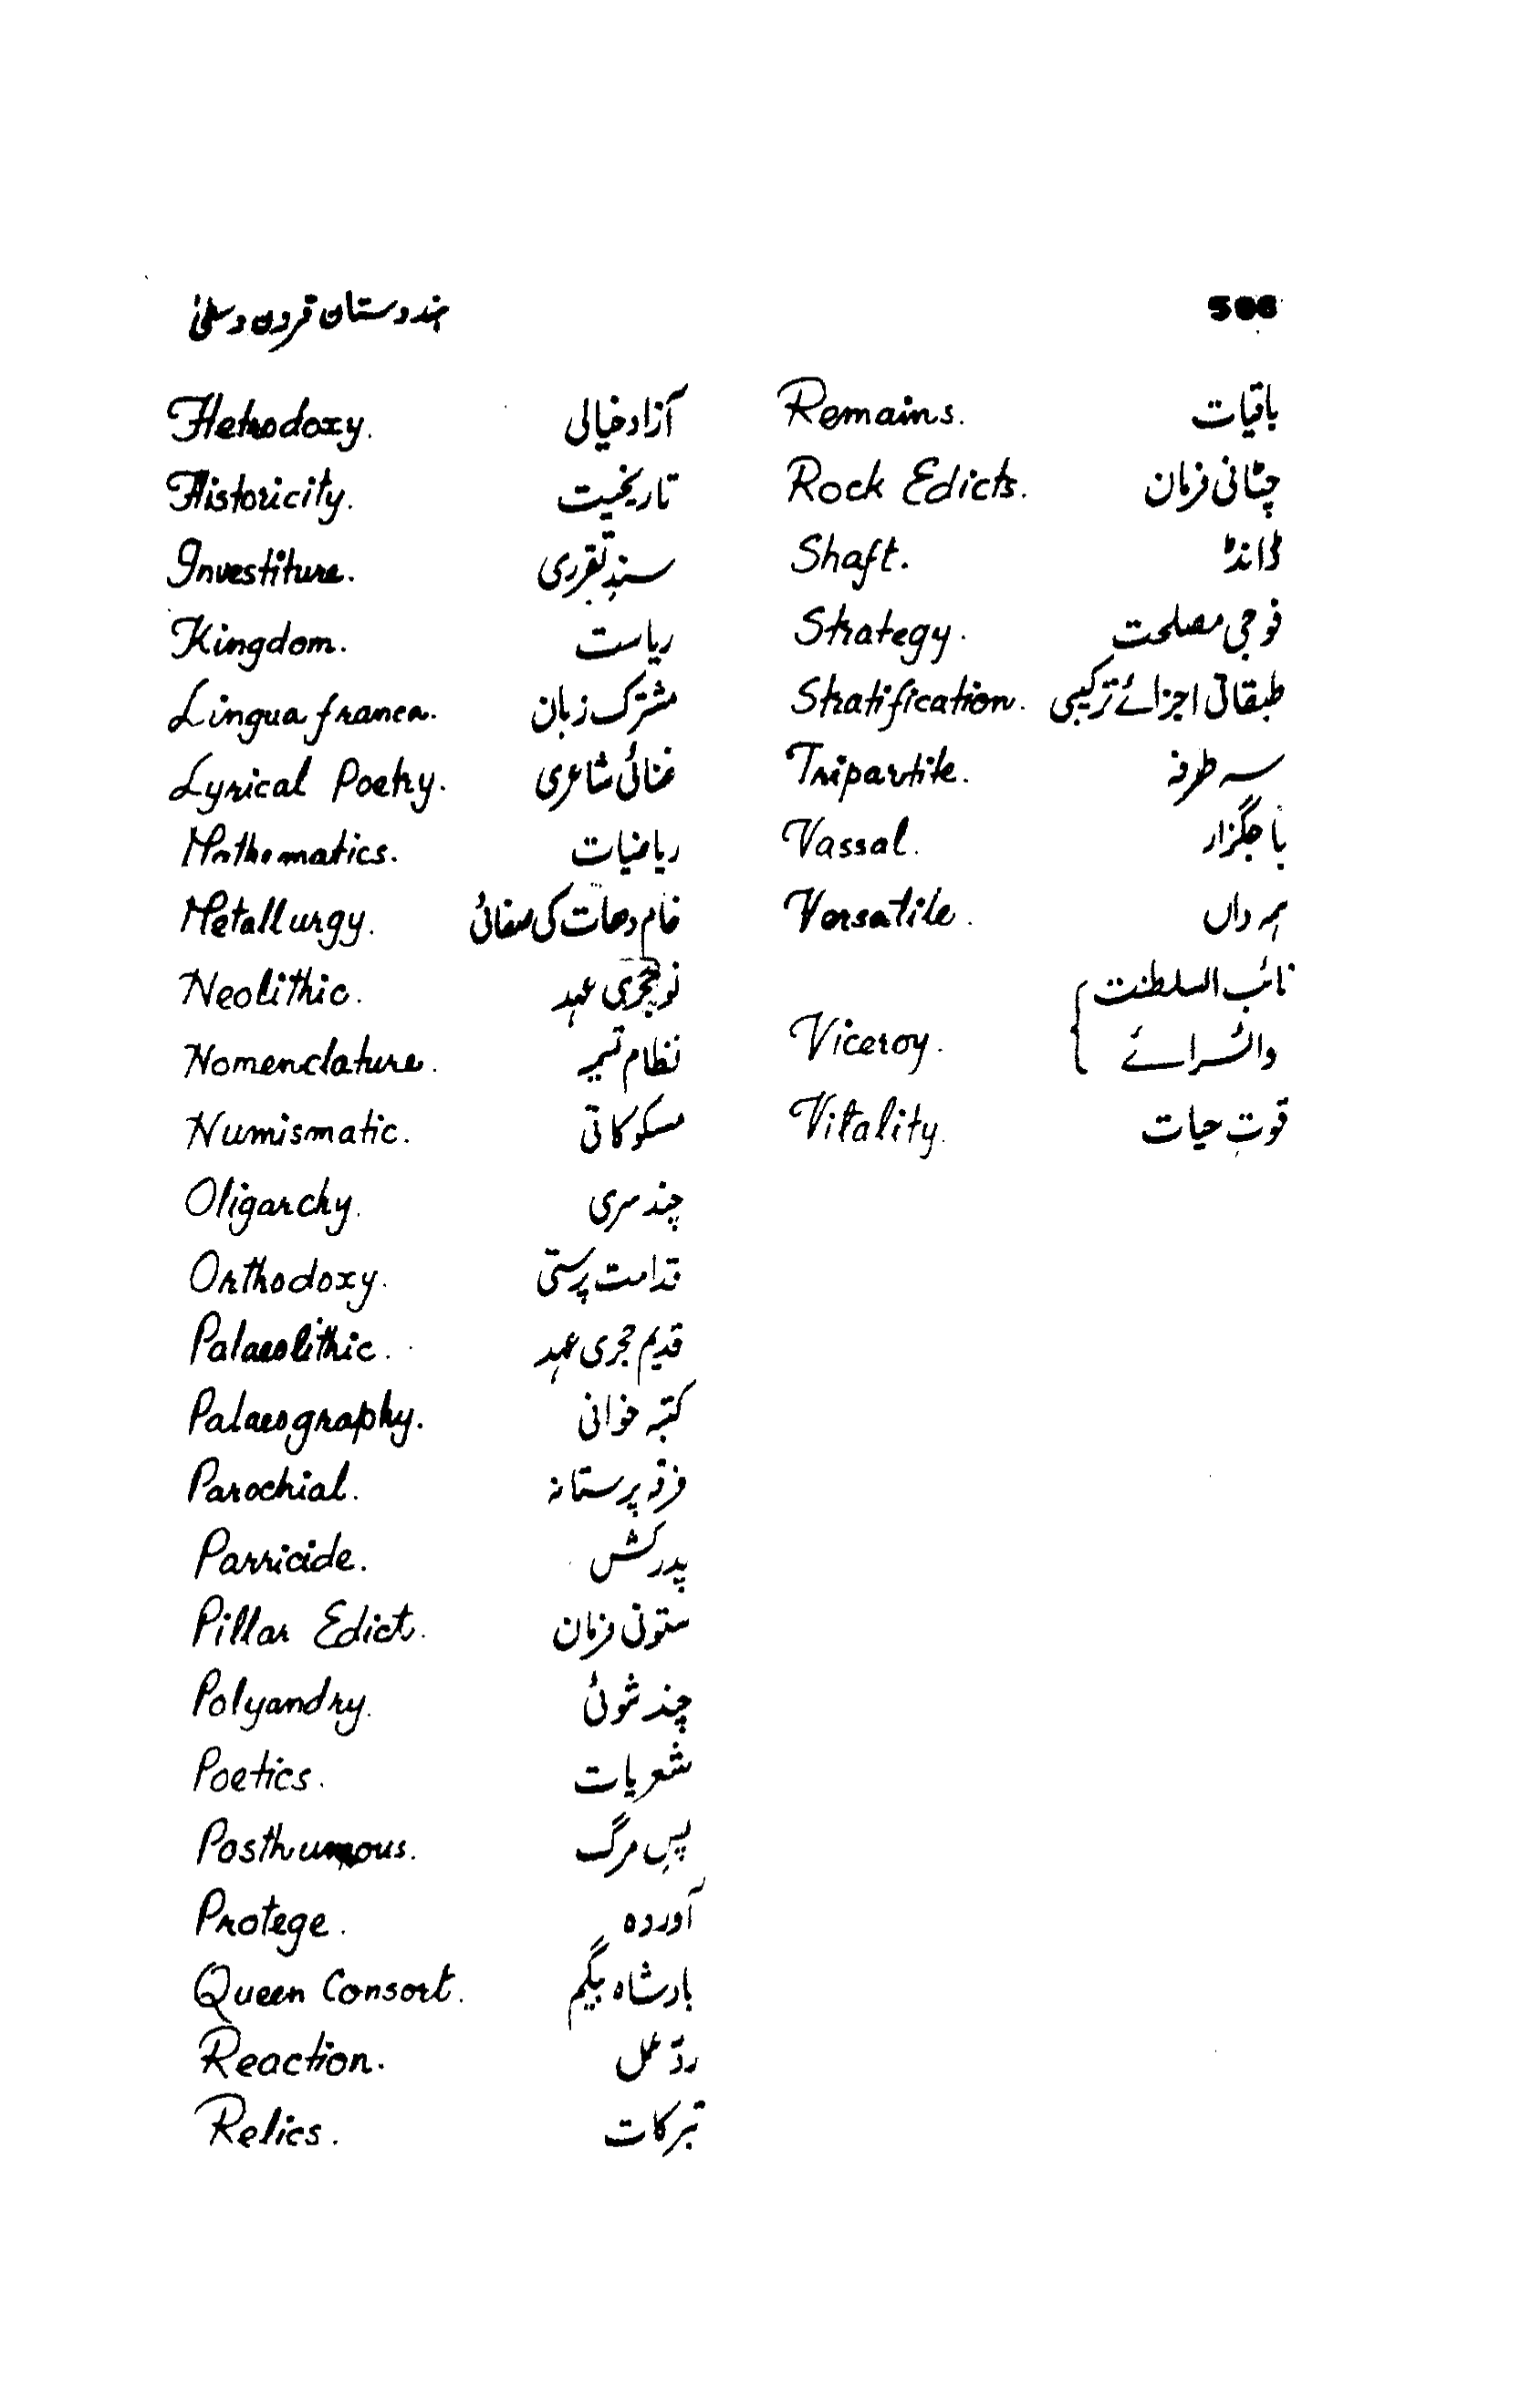 ہندوستان قرون وسطیٰ
506
Hetrodoxy. آزاد خیالی
Historicity. تاریخیت
Investiture. سندِ تقرری
Kingdom. ریاست
Lingua franca. مشترک زبان
Lyrical Poetry. غنائی شاعری
Mathematics. ریاضیات
Metallurgy. خام دھات کی صفائی
Neolithic. نو حجری عہد
Nomenclature. نظام تسمیہ
Numismatic. مسکوکاتی
Oligarchy. چند سری
Orthodoxy. قدامت پرستی
Palaeolithic. قدیم حجری عہد
Palaeography. کتبہ خوانی
Parochial. فرقہ پرستانہ
Parricide. پدر کش
Pillar Edict. ستونی فرمان
Polyandry. چند شوئی
Poetics. شعریات
Posthumous. پسِ مرگ
Protege. آوردہ
Queen Consort. بادشاہ بیگم
Reaction. ردِّ عمل
Relics. تبرکات
Remains. باقیات
Rock Edicts. چٹانی فرمان
Shaft. ڈانڈ
Strategy. فوجی مصلحت
Stratification. طبقاتی اجزائے ترکیبی
Tripartite. سہ طرفہ
Vassal. باجگزار
Versatile. ہمہ داں
نائب السلطنت
Viceroy. وائسرائے
Vitality. قوتِ حیات